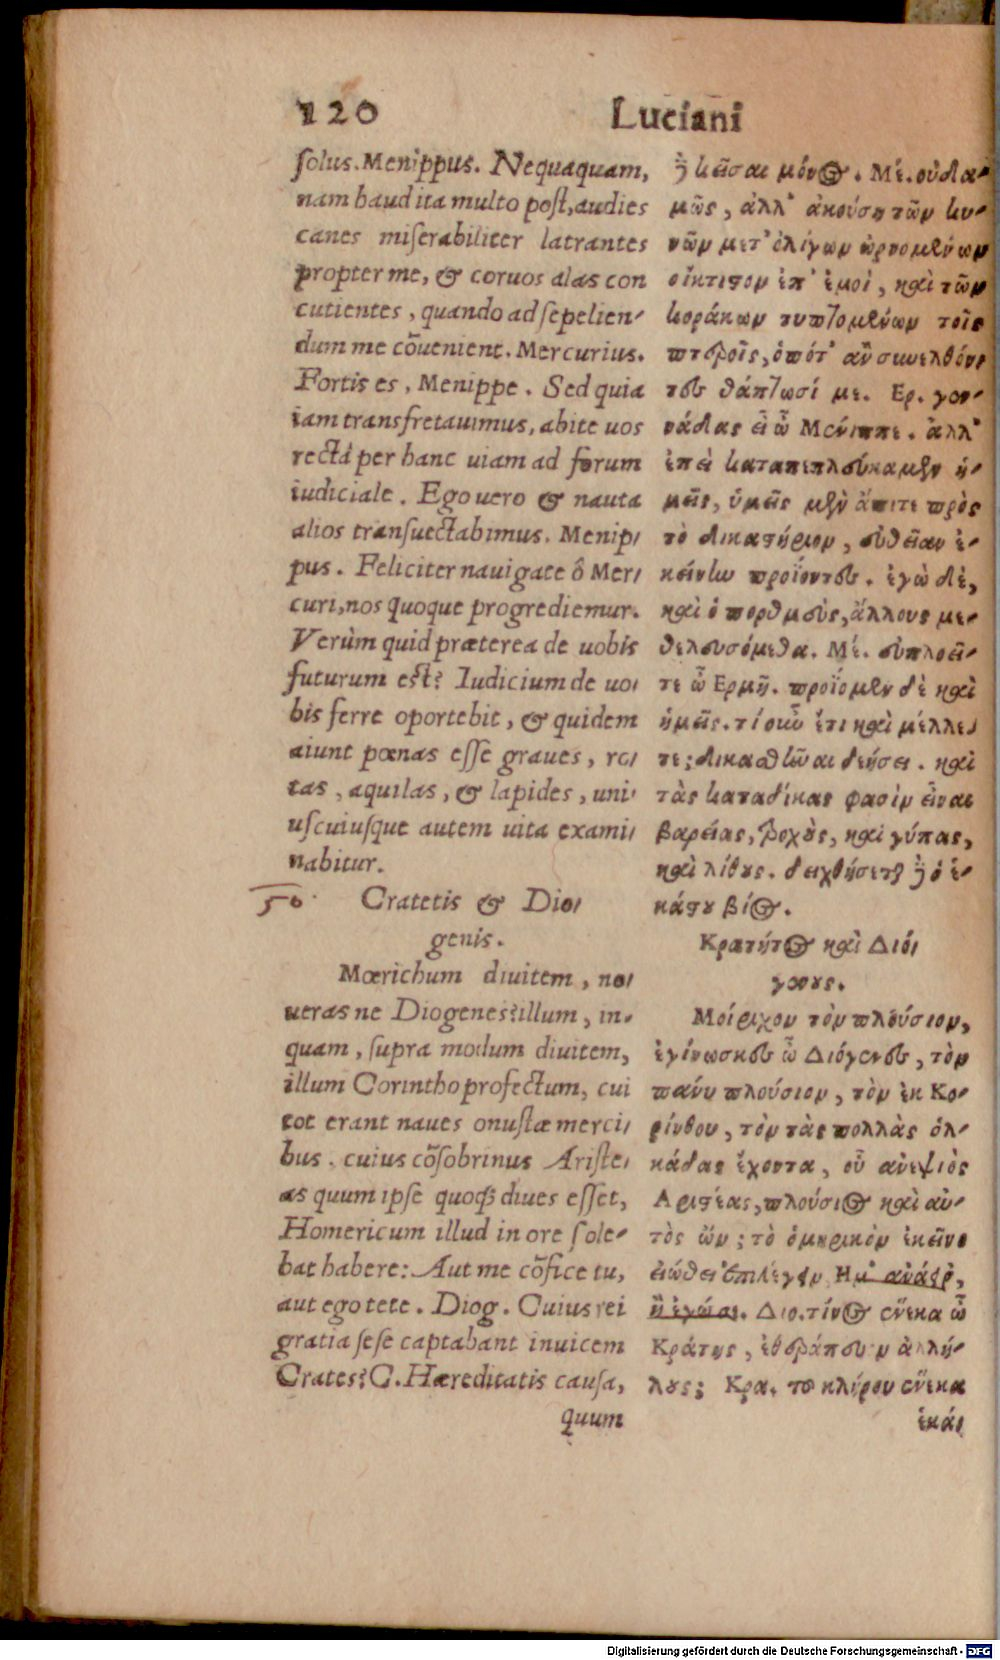 120
Luciani
solus. Menippus. Nequaquam,
nam haud ita multo post, audies
canes miserabiliter latrantes
propter me, & coruos alas con
cutientes, quando ad sepelien-
dum me cõuenient. Mercurius.
Fortis es, Menippe. Sed quia
iam transfretauimus, abite uos
rectà per hanc uiam ad forum
iudiciale. Ego uero & nauta
alios transuectabimus. Menip-
pus. Feliciter nauigate ô Mer-
curi, nos quoque progrediemur.
Verùm quid præterea de uobis
futurum est? Iudicium de uo-
bis ferre oportebit, & quidem
aiunt pœnas esse graues, ro-
tas, aquilas, & lapides, uni-
uscuiusque autem uita exami-
nabitur.
50.
Cratetis & Dio-
genis.
Mœrichum diuitem, no-
ueras ne Diogenes? illum, in-
quam, supra modum diuitem,
illum Corintho profectum, cui
tot erant naues onustæ merci-
bus. cuius cõsobrinus Ariste-
as quum ipse quoq; diues esset,
Homericum illud in ore sole-
bat habere: Aut me cõfice tu,
aut ego te te. Diog. Cuius rei
gratia sese captabant inuicem
Crates? C. Hæreditatis causa,
quum
ἢ κεῖσαι μόνος. Μέ. οὐδα-
μῶς, ἀλλ' ἀκούσῃ τῶν κυ-
νῶν μετ' ὀλίγων ὠρυομένων
οἴκτιστον ἐπ' ἐμοὶ, καὶ τῶν
κοράκων τυπτομένων τοῖς
πτεροῖς, ὁπότ' ἂν συνελθόν-
τες θάπτωσί με. Ερ. γεν-
νάδας εἶ ὦ Μένιππε. ἀλλ'
ἐπεὶ καταπεπλεύκαμεν ἡ-
μεῖς, ὑμεῖς μὲν ἄπιτε πρὸς
τὸ δικαστήριον, εὐθεῖαν ἐ-
κείνην προϊόντες. ἐγὼ δὲ,
καὶ ὁ πορθμεὺς, ἄλλους με-
θελευσόμεθα. Μέ. εὐπλοεῖ-
τε ὦ Ερμῆ. προΐομεν δὲ καὶ
ἡμεῖς. τί οὖν ἔτι καὶ μέλλε-
τε; δικασθῆναι δεήσει. καὶ
τὰς καταδίκας φασὶν εἶναι
βαρείας, τροχοὺς, καὶ γύπας,
καὶ λίθους. δειχθήσεται ἢ ὁ ἑ-
κάστου βίος.
Κρατήτος καὶ Διό-
γενους.
Μοίριχον τὸν πλούσιον,
ἐγίνωσκες ὦ Διόγενες, τὸν
πάνυ πλούσιον, τὸν ἐκ Κο-
ρίνθου, τὸν τὰς πολλὰς ὁλ-
κάδας ἔχοντα, οὗ ἀνεψιὸς
Αριστέας, πλούσιος καὶ αὐ-
τὸς ὤν; τὸ ὁμηρικὸν ἐκεῖνο
εἰώθει ἐπιλέγειν, Η μ' ἀνάειρ,
ἢ ἐγώ σε. Διο. τίνος ἕνεκα ὦ
Κράτης, ἐθεράπευον ἀλλή-
λους; Κρα. τοῦ κλήρου ἕνεκα
ἑκά-
Digitalisierung gefördert durch die Deutsche Forschungsgemeinschaft - DFG